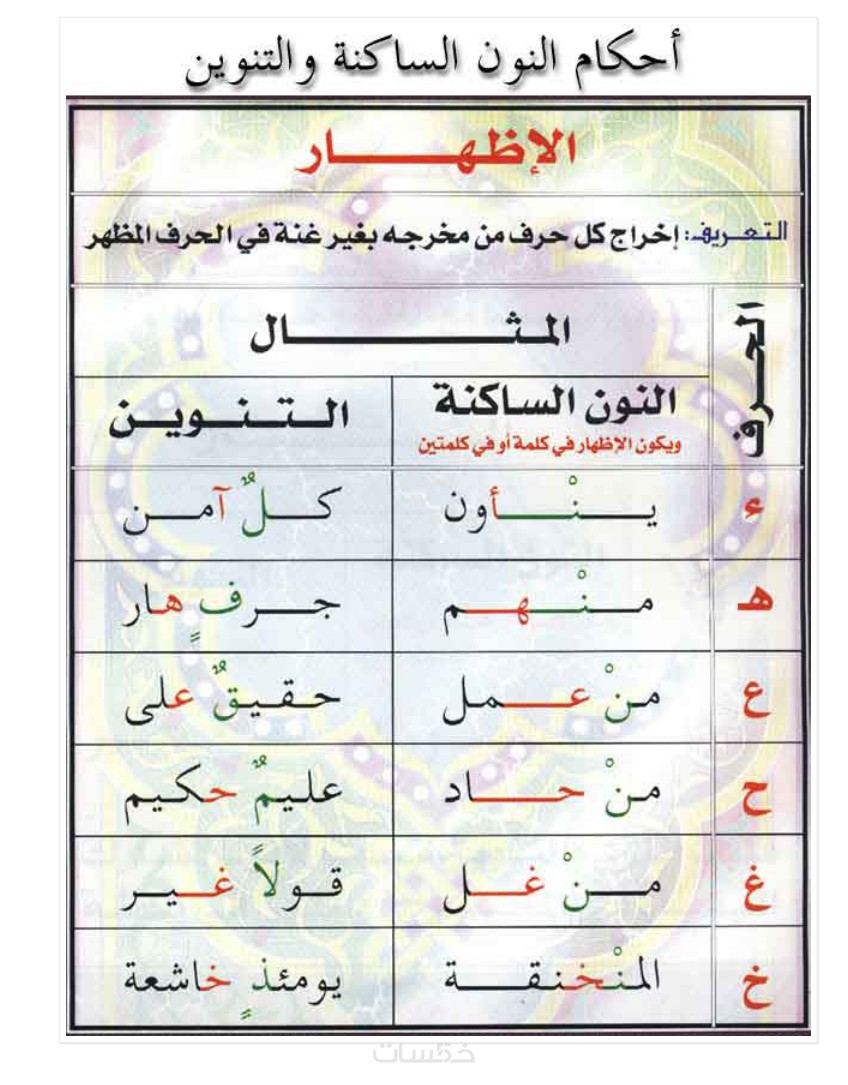 أحكام النون الساكنة والتنوين
الإظهـــــار
التعـريف: إخراج كل حرف من مخرجه بغير غنة في الحرف المظهر
الحـرف
المثـــــال
النون الساكنة
ويكون الإظهار في كلمة أو في كلمتين
التـنـويـن
ء يـنْـأون كـلٌ آمـن
هـ مـنْـهـم جـرفٍ هار
ع منْ عـمل حقيقٌ على
ح منْ حـاد عليمٌ حكيم
غ مـنْ غـل قـولاً غـيـر
خ المنْخنقـة يومئذٍ خاشعة
خمسات